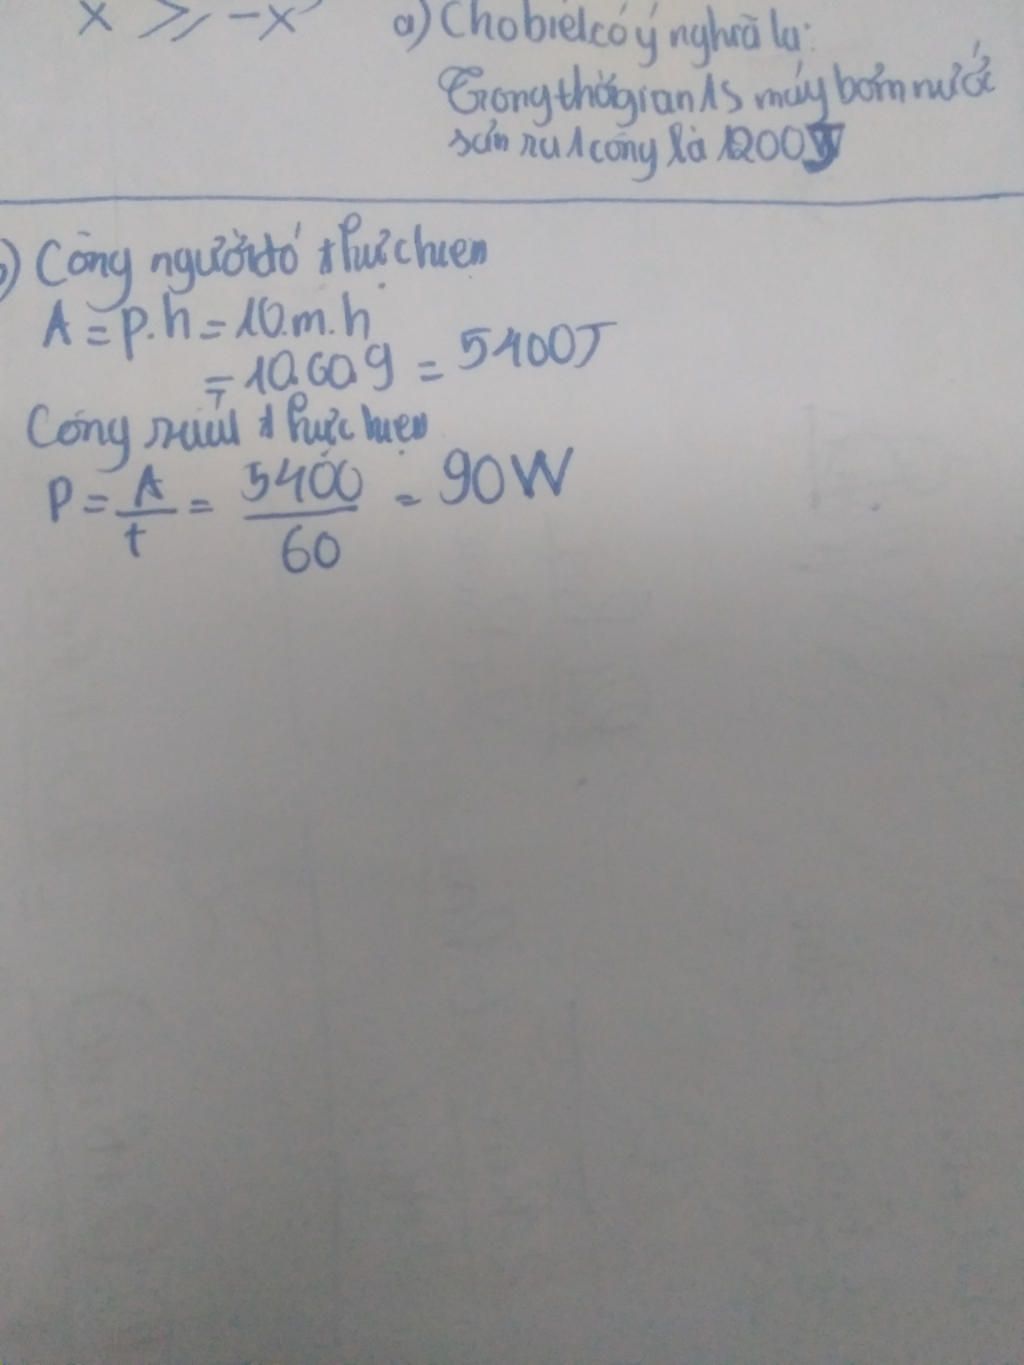 x ⩾ -x
a) Cho biết có ý nghĩa là:
Trong thời gian 1s máy bơm nước
sản ra 1 công là 1200J
b) Công người đó thực hiện
A = p.h = 10.m.h
= 10.60.9 = 5400J
Công suất thực hiện
P = A/t = 5400/60 = 90W